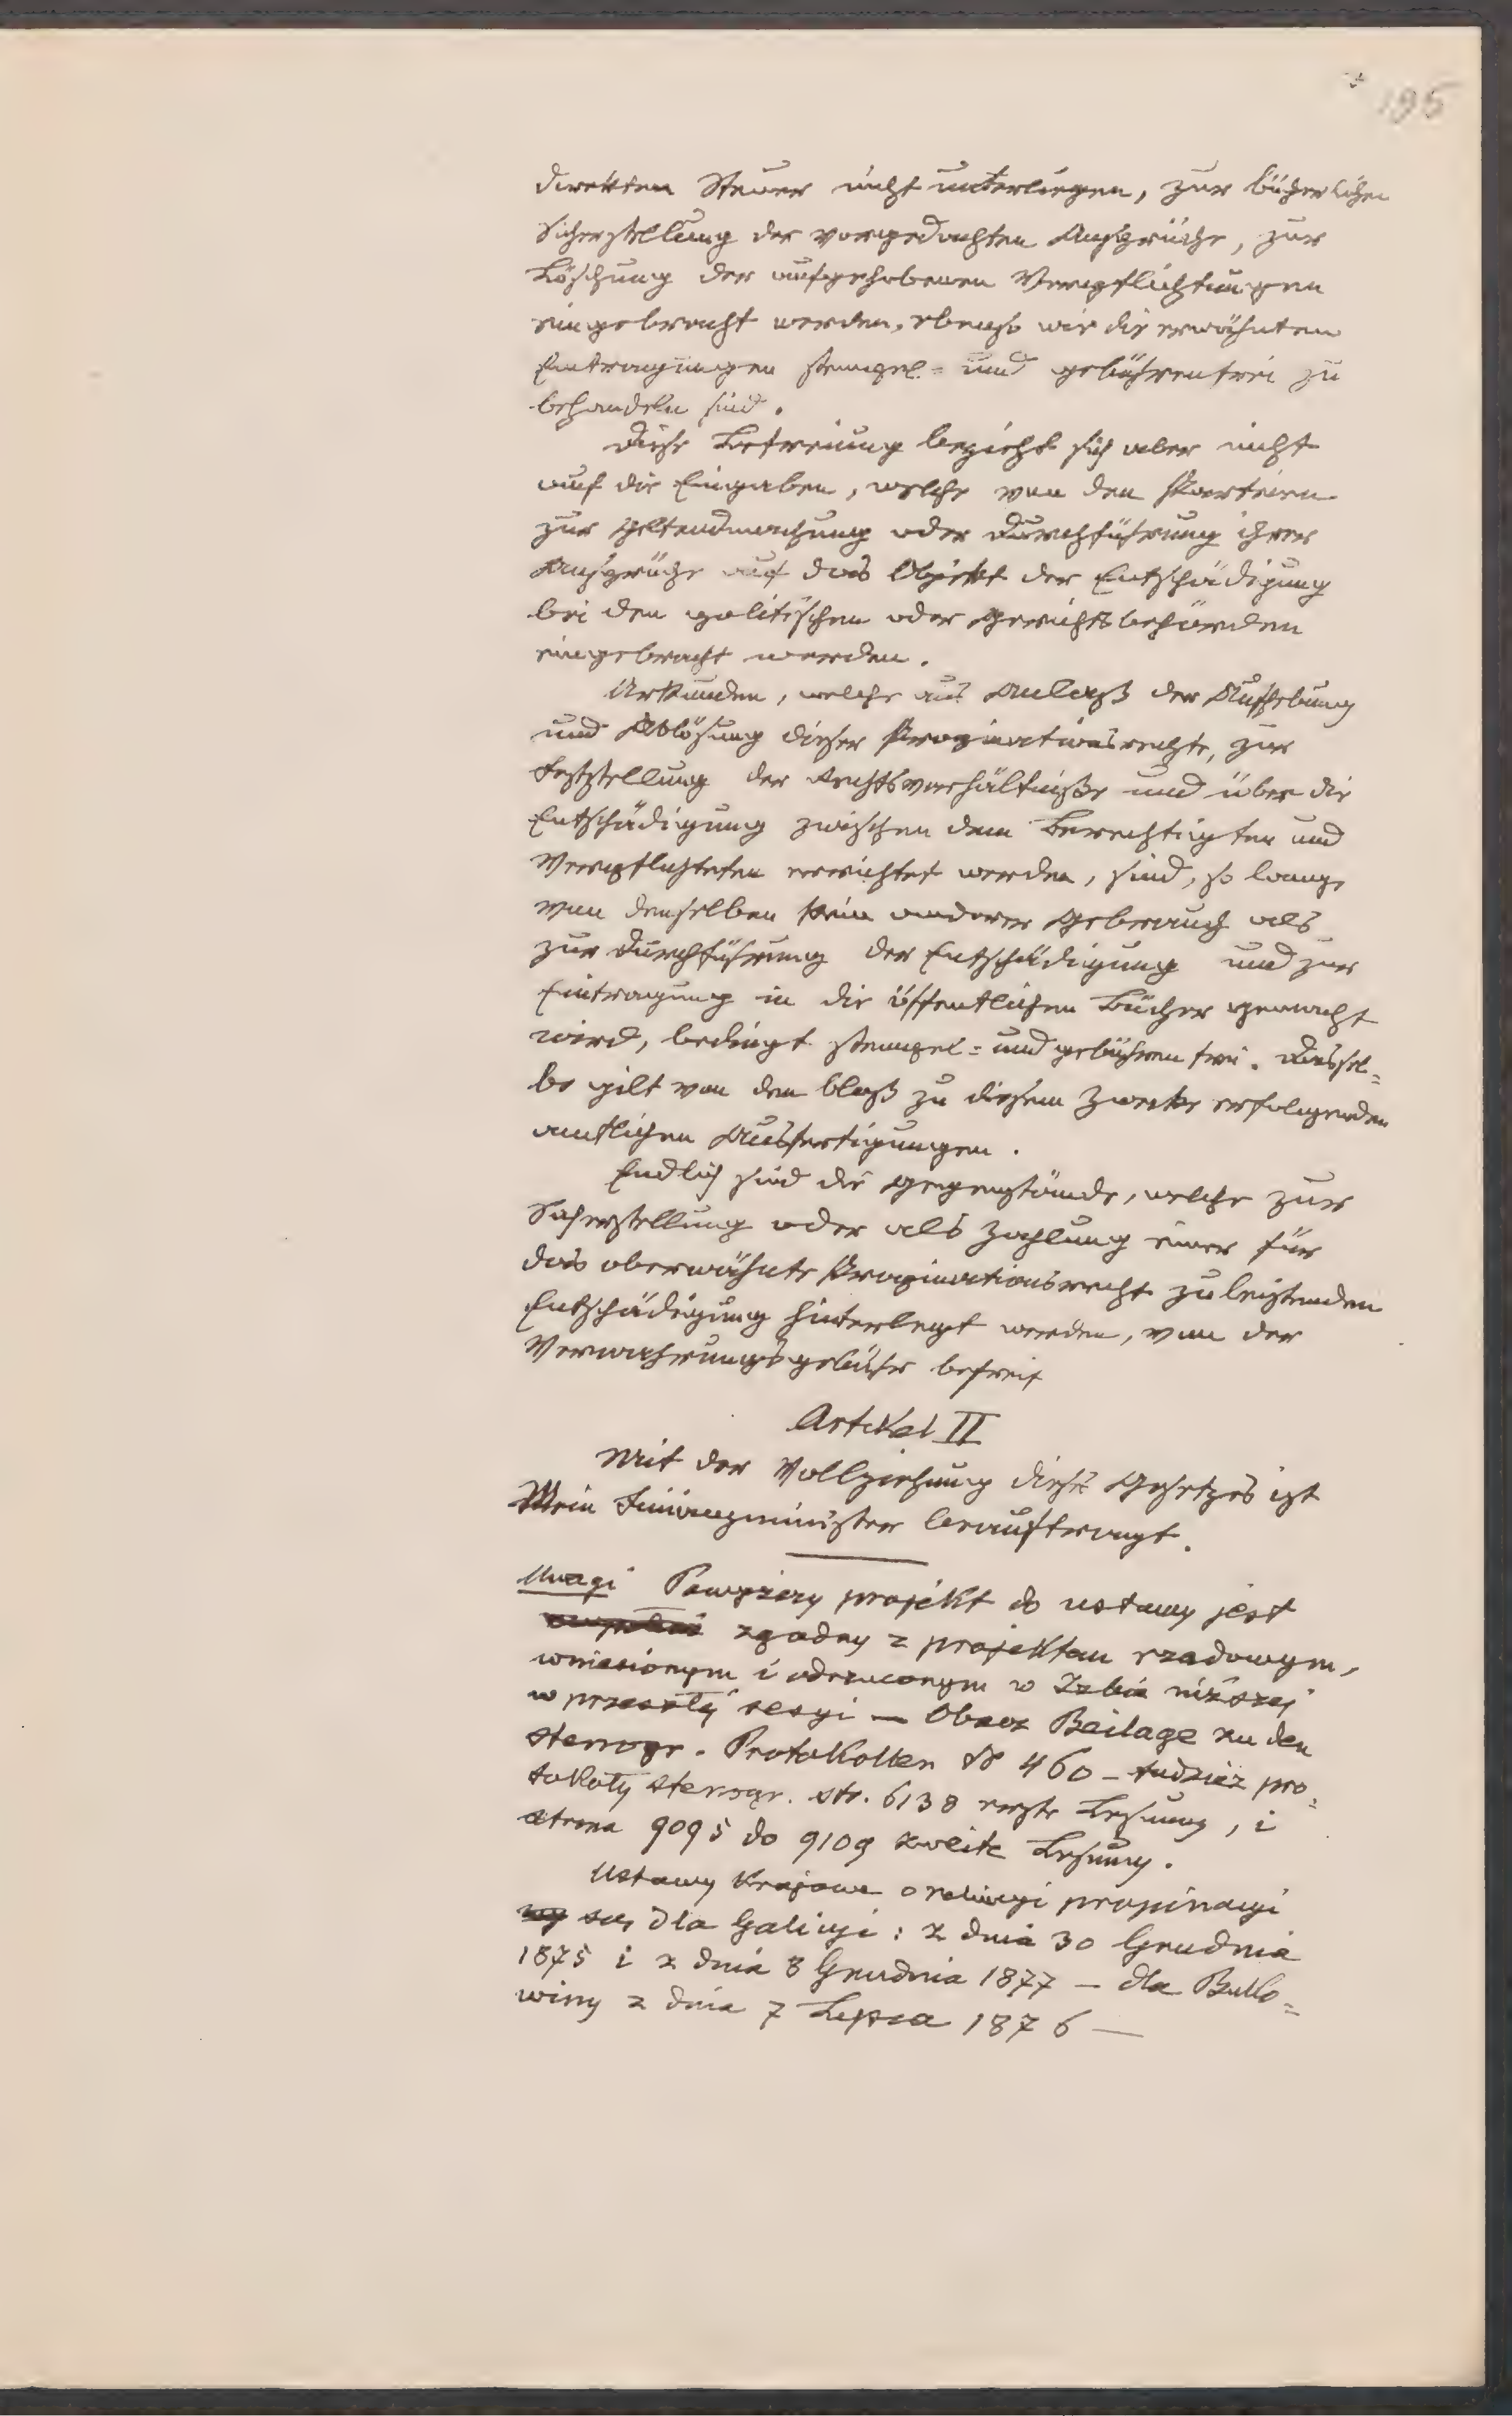 195
direkten Steuer nicht unterliegen, zur bücherlichen
Sicherstellung der vorgedachten Ansprüche, zur
Löschung der aufgehobenen Verpflichtungen
eingebracht werden, ebenso wie die erwähnten
Eintragungen stempel= und gebührenfrei zu
behandeln sind.
Diese Befreiung bezieht sich aber nicht
auf die Eingaben, welche von den Parteien
zur Geltendmachung oder Durchführung ihrer
Ansprüche auf das Objekt der Entschädigung
bei den politischen oder Gerichtsbehörden
eingebracht werden.
Urkunden, welche aus Anlaß der Aufhebung
und Ablösung dieser Propinationsrechte, zur
Feststellung der Rechtsverhältniße und über die
Entschädigung zwischen dem Berechtigten und
Verpflichteten errichtet werden, sind, so lange
von denselben kein anderer Gebrauch als
zur Durchführung der Entschädigung und zur
Eintragung in die öffentlichen Bücher gemacht
wird, bedingt stempel= und gebührenfrei. Dassel=
be gilt von den bloß zu diesem Zwecke erfolgenden
amtlichen Ausfertigungen.
Endlich sind die Gegenstände, welche zur
Sicherstellung oder als Zahlung einer für
das oberwähnte Propinationsrecht zu leistenden
Entschädigung hinterlegt werden, von der
Verwahrungsgebühr befreit
Artikel II
Mit der Vollziehung dieses Gesetzes ist
Mein Finanzminister beauftragt.
Uwagi Powyższy projekt do ustawy jest
zgodny z projektem rządowym,
wniesionym i odrzuconym w Izbie niższej
w przeszłej sesyi — Obacz Beilage zu den
stenogr. Protokollen № 460 — tudzież pro=
tokoły stenogr. str. 6138 erste Lesung, i
strona 9095 do 9109 zweite Lesung.
Ustawy krajowe o propinacyi
są dla Galicyi: z dnia 30 Grudnia
1875 i z dnia 8 Grudnia 1877 — dla Buko=
winy z dnia 7 Lipca 1876 —